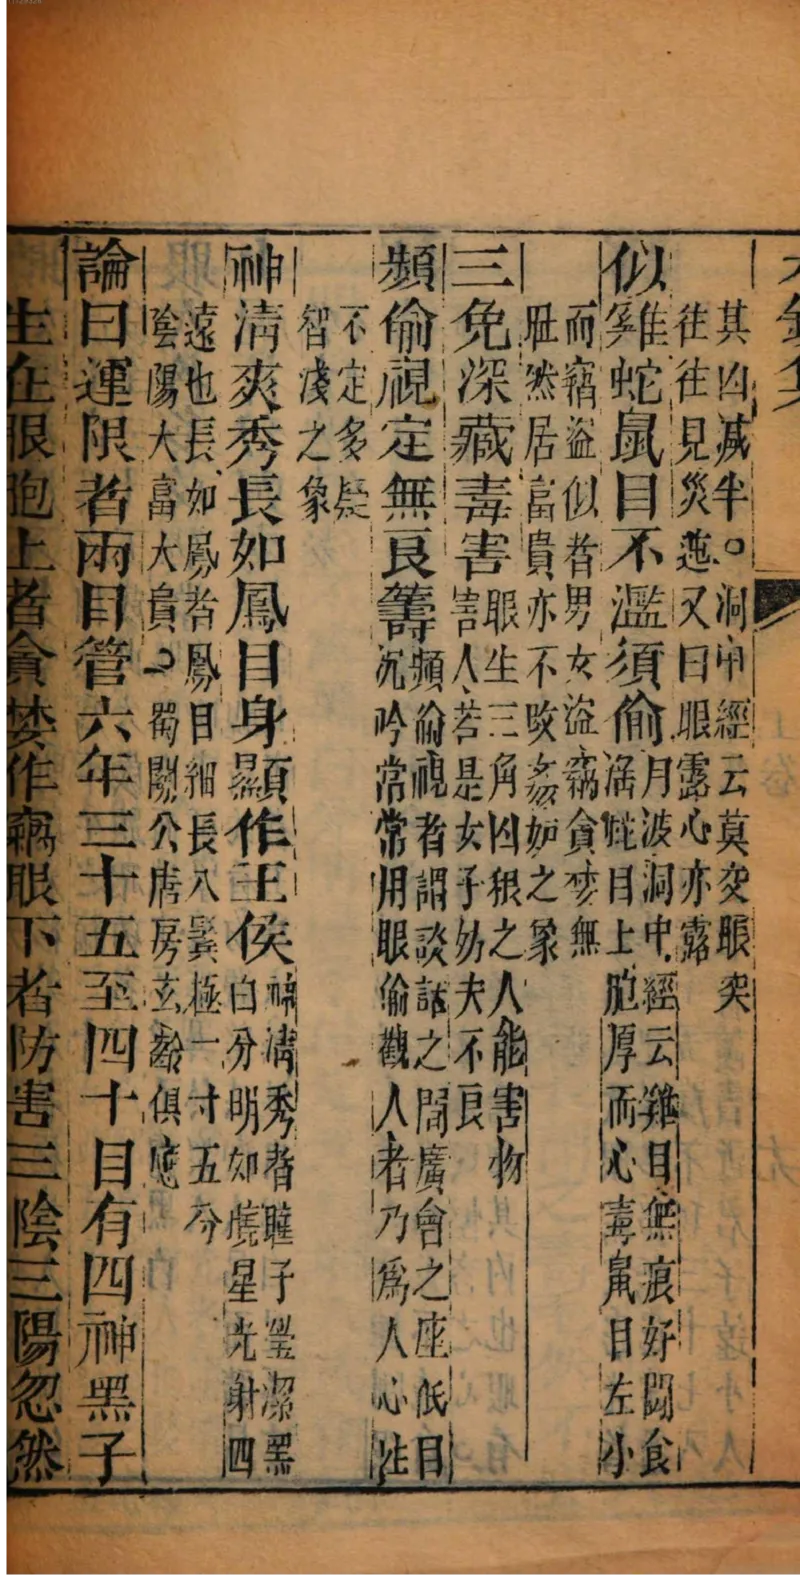 其凶減半○洞中經云莫交眼突
往往見災迍又曰眼露心亦露
似雞蛇鼠目不濫須偷
月波洞中經云雞目無痕好鬪食
淫蛇目上胞厚而心毒鼠目左小
而竊盜似者男女盜竊貪婪無
恥然居富貴亦不改姦妒之象
三免深藏毒害
眼生三角凶狠之人能害物
害人若是女子妨夫不良
頻偷視定無良籌
頻偷視者謂談話之間廣會之座低目
沉吟常常用眼偷觀人者乃為人心性
不定多疑
智淺之象
神清爽秀長如鳳目身顯作王侯
神清秀者睡子瑩潔黑
白分明如曉星光射四
遠也長如鳳者鳳目細長入鬢極一寸五分
陰陽大富大貴○蜀關公唐房玄齡俱應
論曰運限者兩目管六年三十五至四十目有四神黑子
生在眼胞上者貪婪作竊眼下者防害三陰三陽忽然